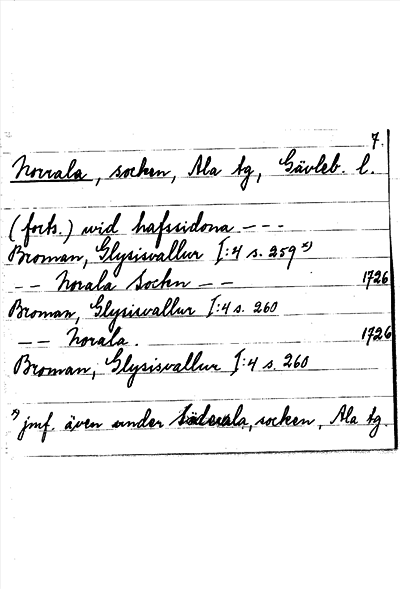 7.
Norrala, socken, Ala tg, Gävleb. l.
(forts.) wid hafssidona - - -
Broman, Glysisvallur I:4 s. 259 x)
- - Norala Sockn - - 1726
Broman, Glysisvallur I:4 s. 260
- - Norala. 1726
Broman, Glysisvallur I:4 s. 260
x) jmf. även under Söderala, socken, Ala tg.